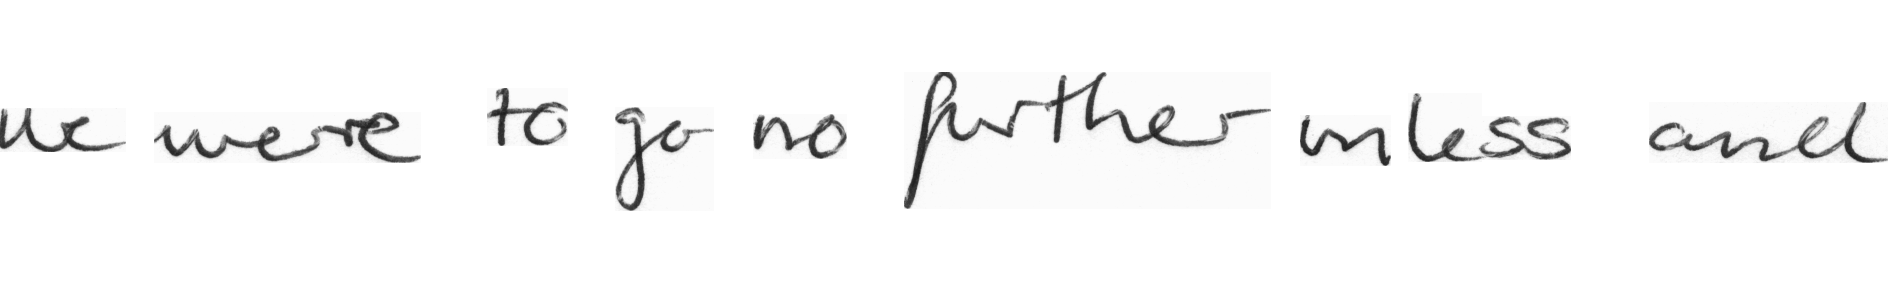 We were to go no further unless and